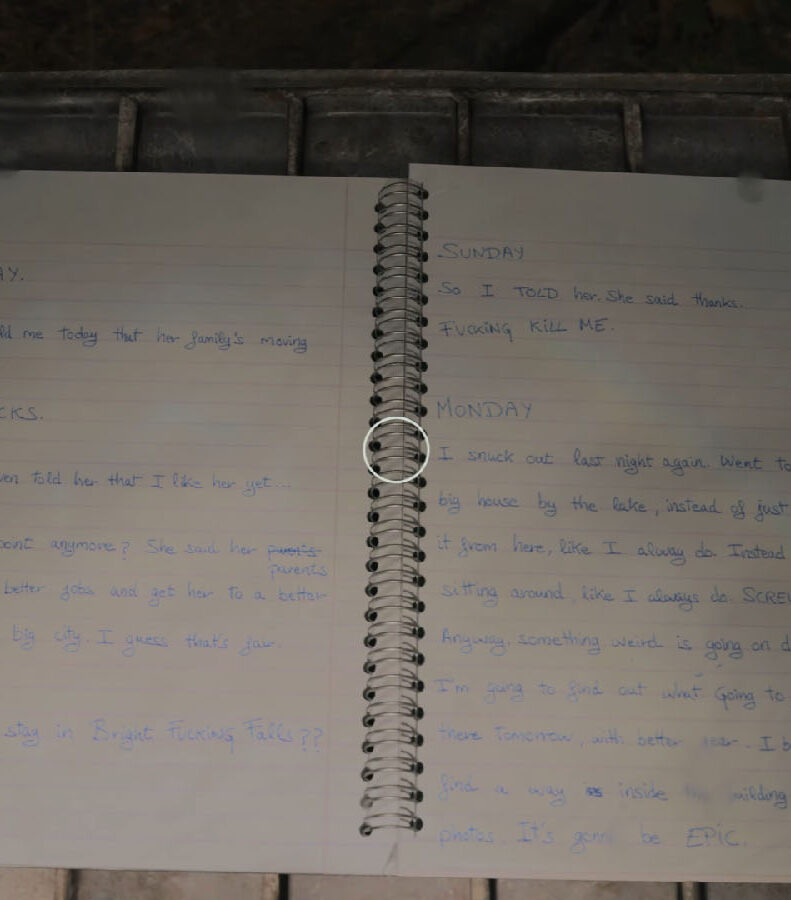 AY.
ld me today that her family's moving
CKS.
ven told her that I like her yet...
point anymore? She said her parents
parents
better jobs and get her to a better
big city. I guess that's fair.
stay in Bright Fucking Falls??
SUNDAY
So I TOLD her. She said thanks.
FUCKING KILL ME.
MONDAY
I snuck out last night again. Went to
big house by the lake, instead of just
it from here, like I alway do. Instead
sitting around, like I always do. SCREW
Anyway, something weird is going on d
I'm going to find out what. Going to
there tomorrow, with better gear. I b
find a way inside uilding
photos. It's gonn be EPIC.